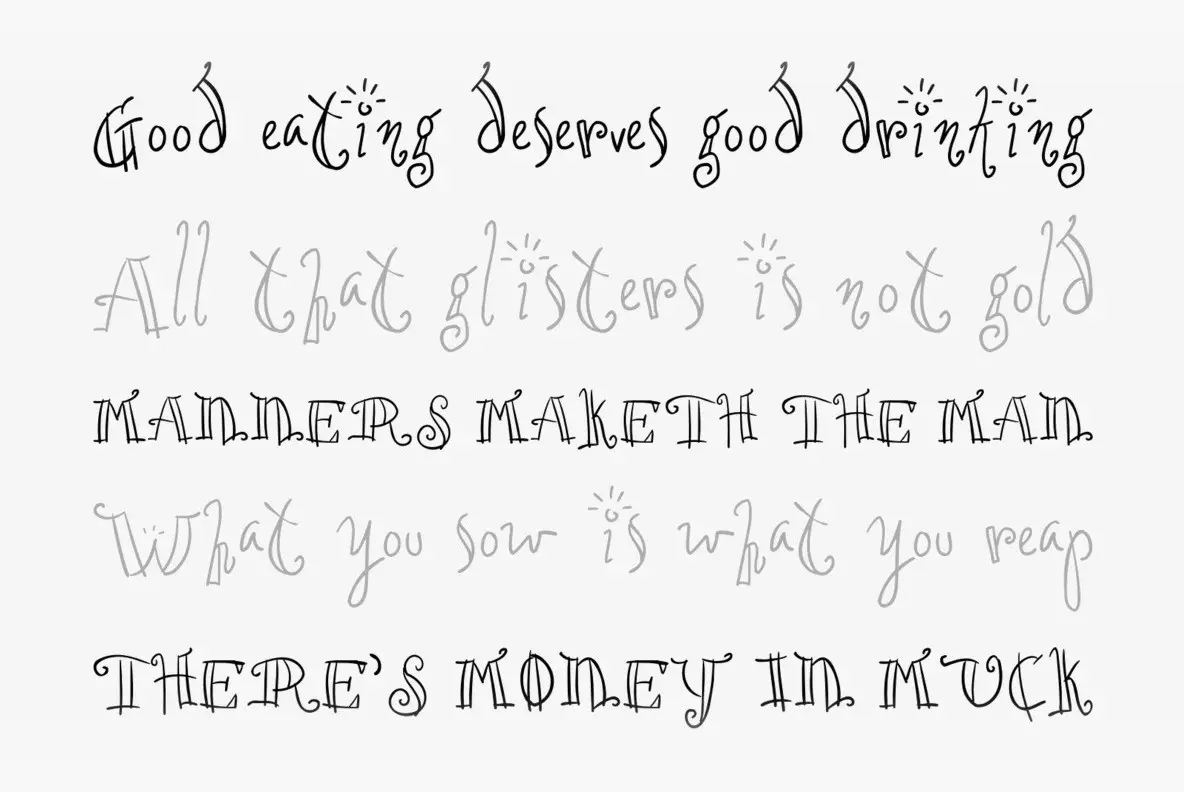 Good eating deserves good drinting
All that glisters is not gold
MANNERS MAKETH THE MAN
What you sow is what you reap
THERE'S MONEY IN MUCK